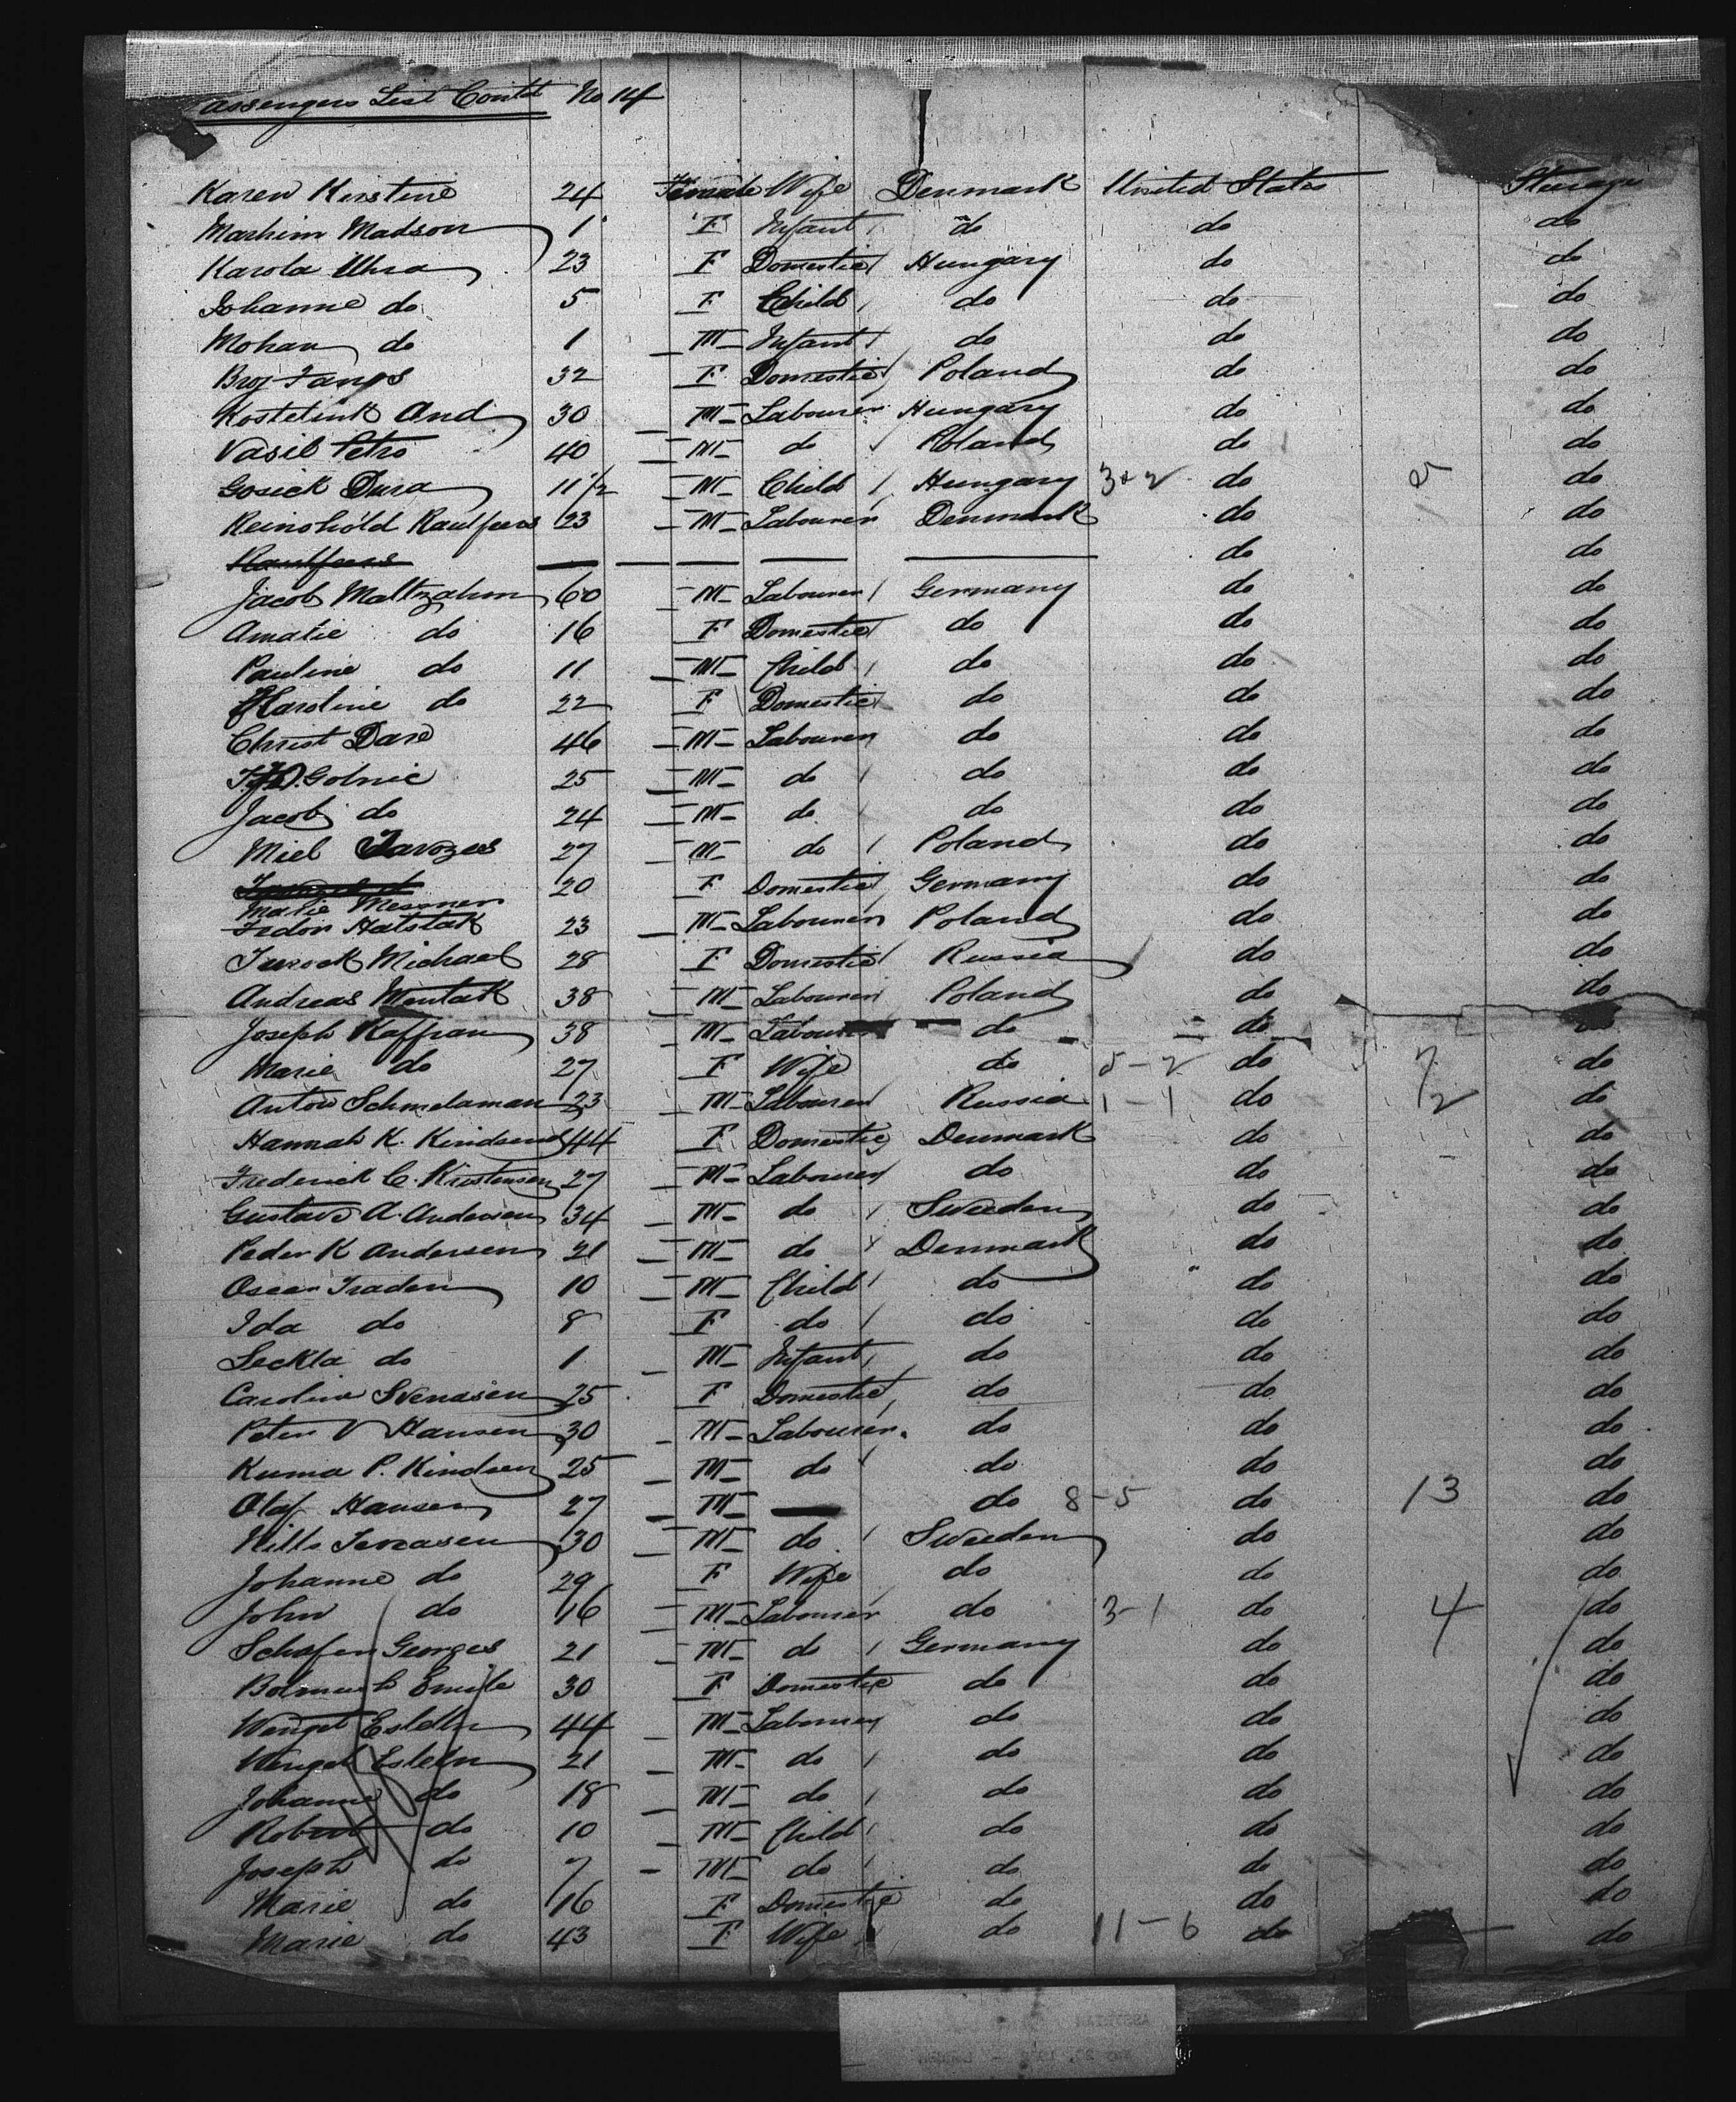 assengers List Contd No 14
Karen Kirstine 24 Female Wife Denmark United States Steerage
Madson 1 F Infant do do do
Karola Uhra 23 F Domestic Hungary do do
Johanne do 5 F Child do do do
Mohan do 1 M Infant do do do
32 F Domestic Poland do do
Kostelink And 30 M Labourer Hungary do do
Vasil Petro 40 M do Poland do do
Gosick Dura 11 1/2 M Child Hungary 3+2 do do
Reinohold Raulfeers 23 M Labourer Denmark do do
Raulfeers do do
Jacob Maltzahon 60 M Labourer Germany do do
Amalie do 16 F Domestic do do do
Pauline do 11 M Child do do do
Karoline do 22 F Domestic do do do
Christ Dare 46 M Labourer do do do
Golnic 25 M do do do do
Jacob do 24 M do do do do
Miel 27 M do Poland do do
20 F Domestic Germany do do
Marie Messner
Fedor Hatstak 23 M Labourer Poland do do
Turock Michael 28 F Domestic Russia do do
Andreas Mentak 38 M Labourer Poland do do
Joseph Kaffran 38 M Labourer do do
Marie do 27 F Wife do 5-2 do 7 do
Anton Schmelaman 23 M Labourer Russia 1-1 do 2 do
Hannah K. Kindsend 44 F Domestic Denmark do do
Frederick C. Kristensen 27 M Labourer do do do
Gustave A. Andersen 34 M do Sweden do do
Peder K Andersen 21 M do Denmark do do
Oscar Traden 10 M Child do do do
Ida do 8 F do do do do
Seckla do 1 M Infant do do do
Caroline Svendsen 25 F Domestic do do do
Peter V Hansen 30 M Labourer do do do
Kuma P. Kindsen 25 M do do do do
Olaf Hansen 27 M do 8-5 do 13 do
Nills 30 M do Sweden do do
Johanne do 29 F Wife do do do
John do 16 M Labourer do 3-1 do 4 do
Schafer Georges 21 M do Germany do do
Emile 30 F Domestic do do do
Wengel 44 M Labourer do do do
Wengel 21 M do do do do
Johanne do 18 M do do do do
Robert do 10 M Child do do do
Joseph do 7 M do do do do
Marie do 16 F Domestic do do do
Marie do 43 F Wife do 11-6 do do